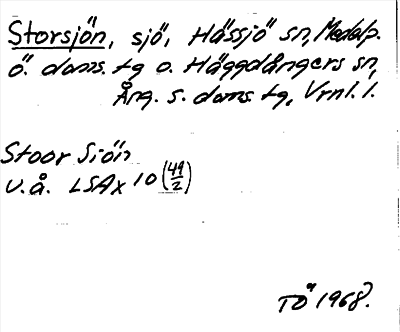 Storsjön, sjö, Hässjö sn, Medelp.
ö. doms. tg o. Häggdångers sn,
Ång. s. doms. tg, Vrnl. l.
Stoor Siön
u.å. LSA X 10 (49/2)
TÖ 1968.